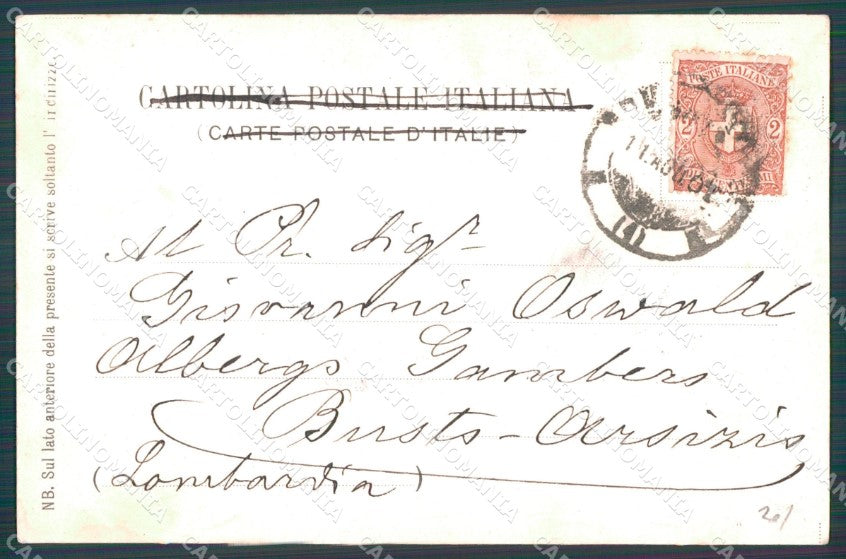 CARTOLINA POSTALE ITALIANA
(CARTE POSTALE D'ITALIE)
POSTE ITALIANE
2 2
11 AGO 01
Al Pr. Sigr
Giovanni Oswald
Albergo Gambero
Busto-Arsizio
(Lombardia)
NB. Sul lato anteriore della presente si scrive soltanto l'indirizzo.
20/
CARTOLINOMANIA